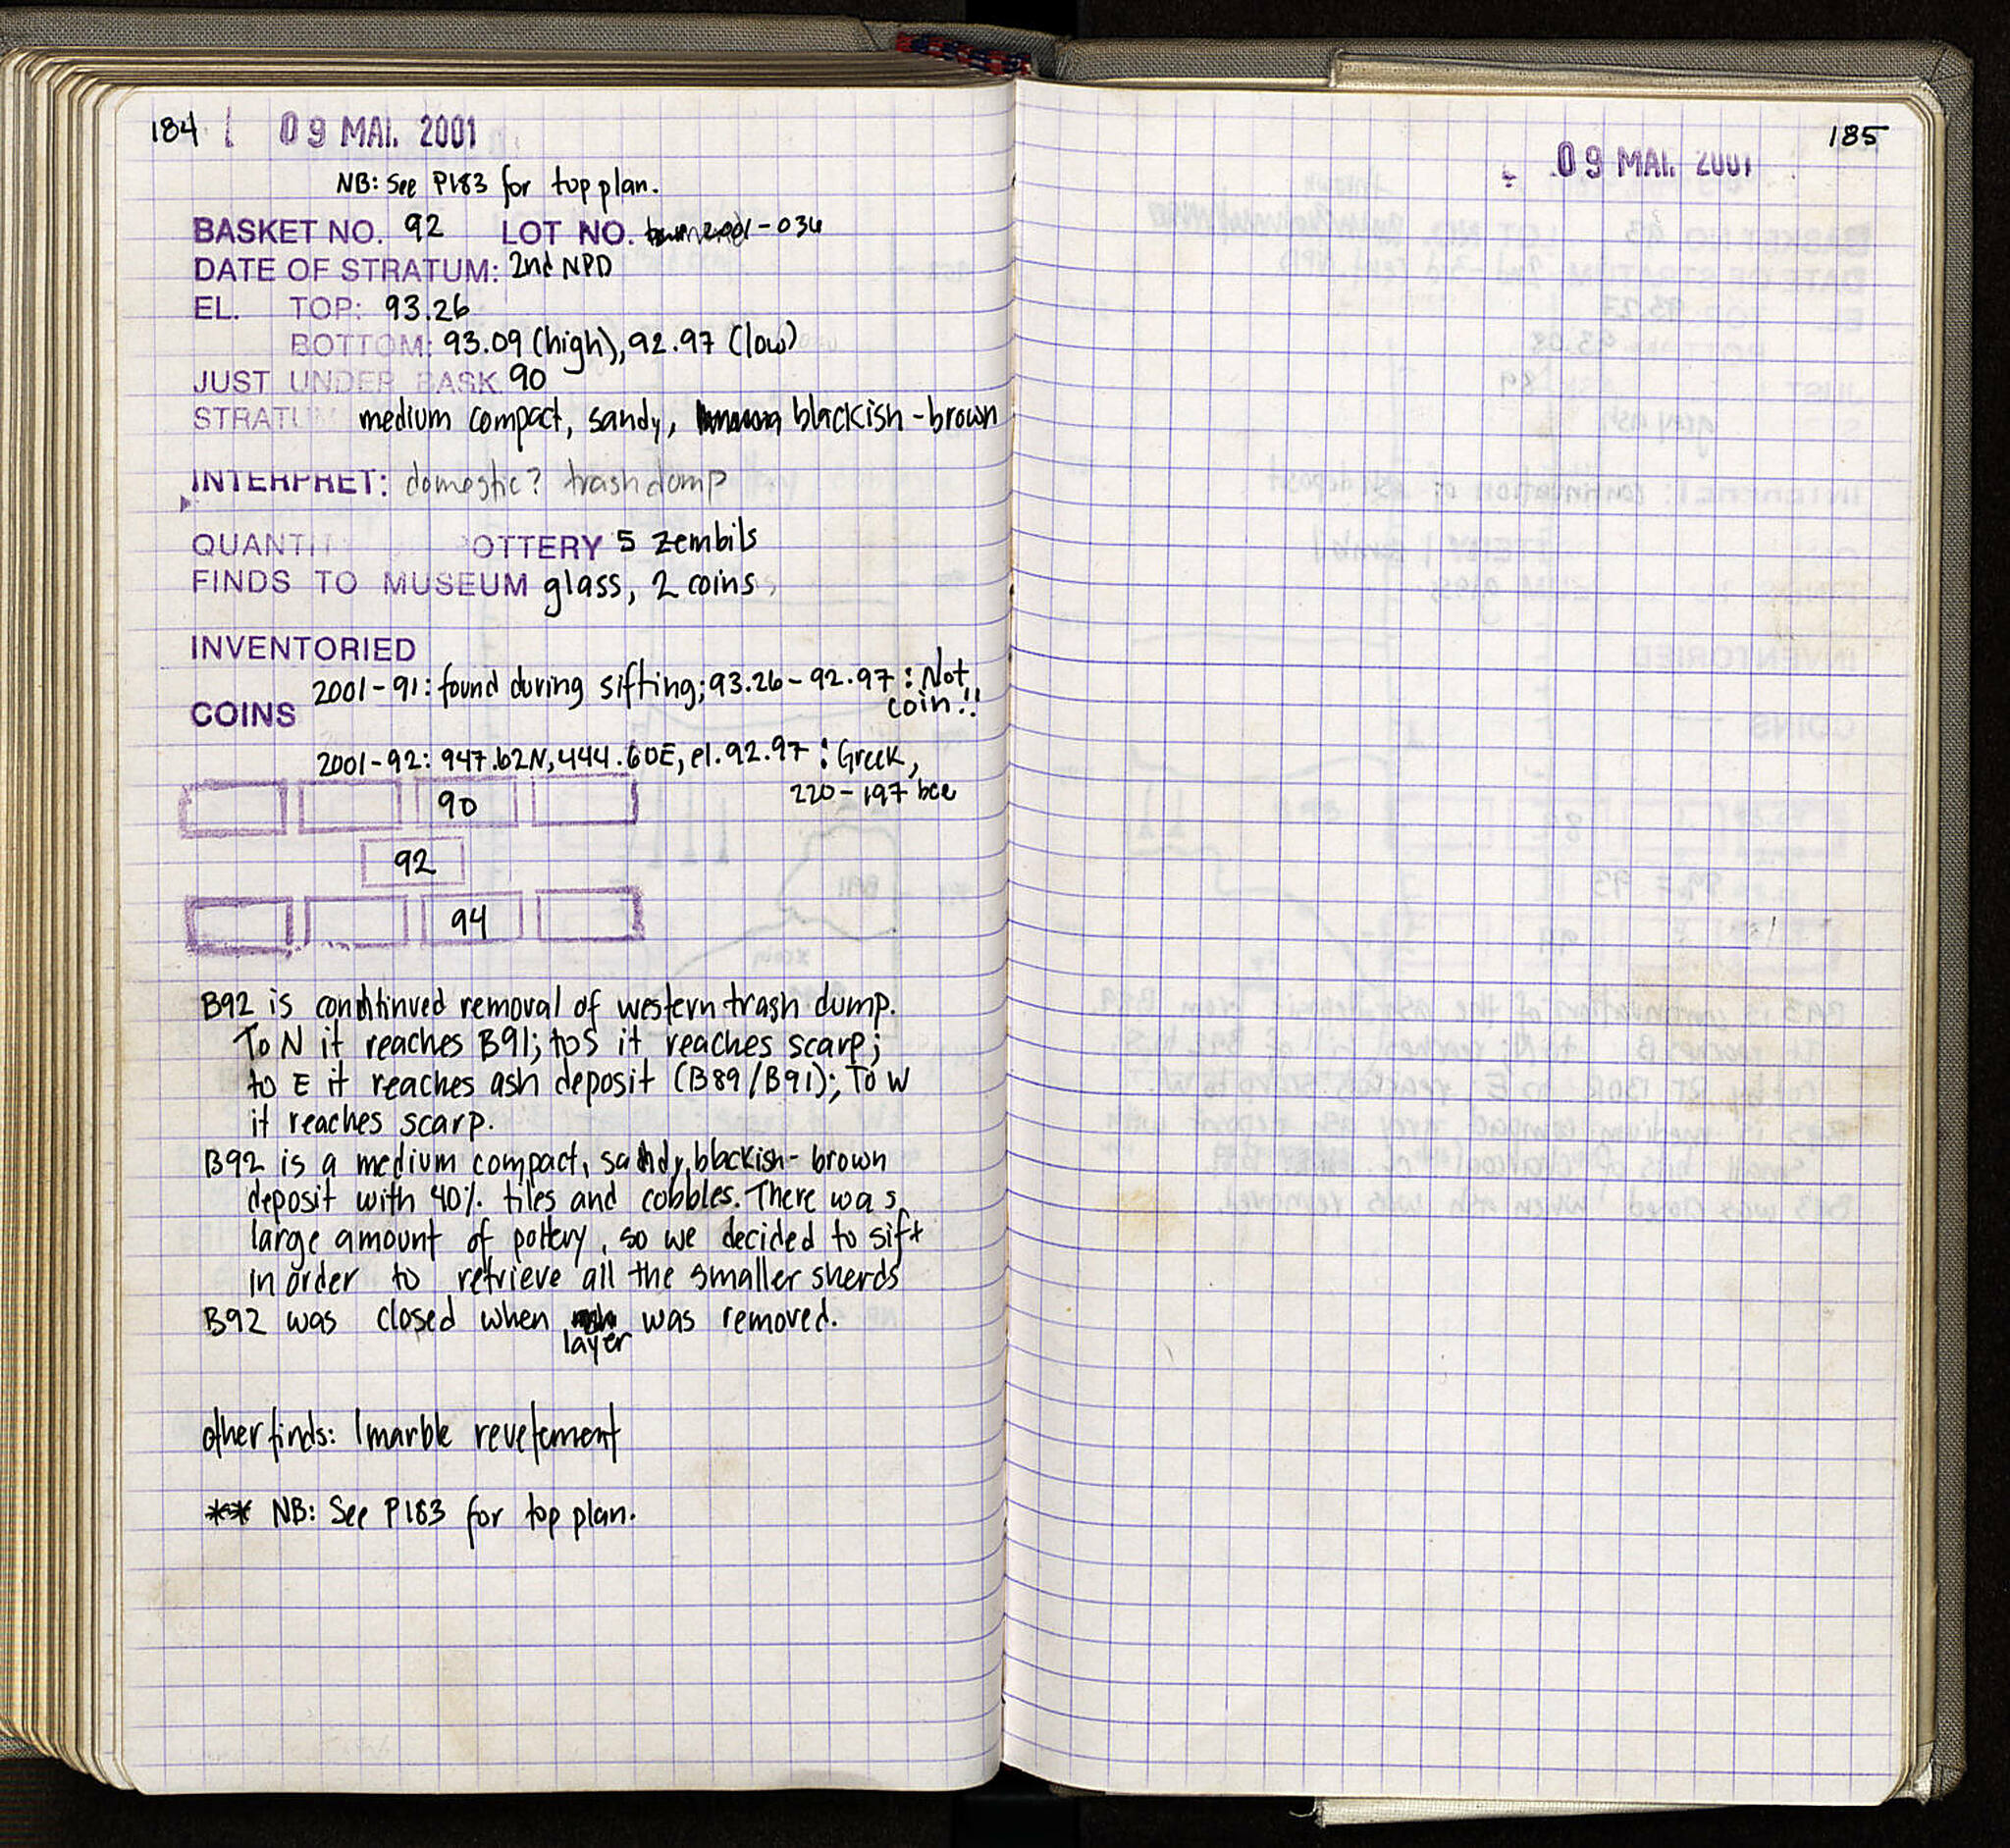 184 09 MAI. 2001
NB: See P183 for top plan.
BASKET NO. 92 LOT NO. 2001-036
DATE OF STRATUM: 2nd NPD
EL. TOP: 93.26
BOTTOM: 93.09 (high), 92.97 (low)
JUST UNDER BASK 90
STRATU medium compact, sandy, blackish-brown
INTERPRET: domestic? trash dump
QUANTIT POTTERY 5 zembils
FINDS TO MUSEUM glass, 2 coins,
INVENTORIED
2001-91: found during sifting; 93.26-92.97: Not
coin!!
COINS
2001-92: 947.62N, 444.60E, el. 92.97: Greek,
220-197 bce
90
92
94
B92 is continued removal of western trash dump.
To N it reaches B91; to S it reaches scarp;
to E it reaches ash deposit (B89/B91); To W
it reaches scarp.
B92 is a medium compact, sandy, blackish-brown
deposit with 40% tiles and cobbles. There was
large amount of pottery, so we decided to sift
in order to retrieve all the smaller sherds
B92 was closed when layer was removed.
other finds: 1 marble revetement
** NB: See P183 for top plan.
185
09 MAI. 2001